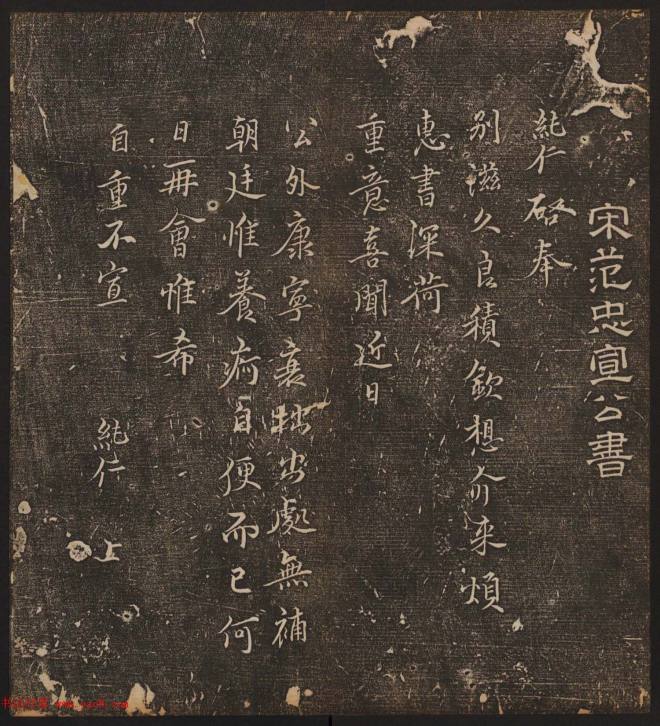 宋范忠宣公書
純仁啓奉
別滋久良積欽想介來煩
惠書深荷
重意喜聞近日
公外康寧衰拙安處無補
朝廷惟養痾自便而已何
日再會惟希
自重不宣
純仁 上